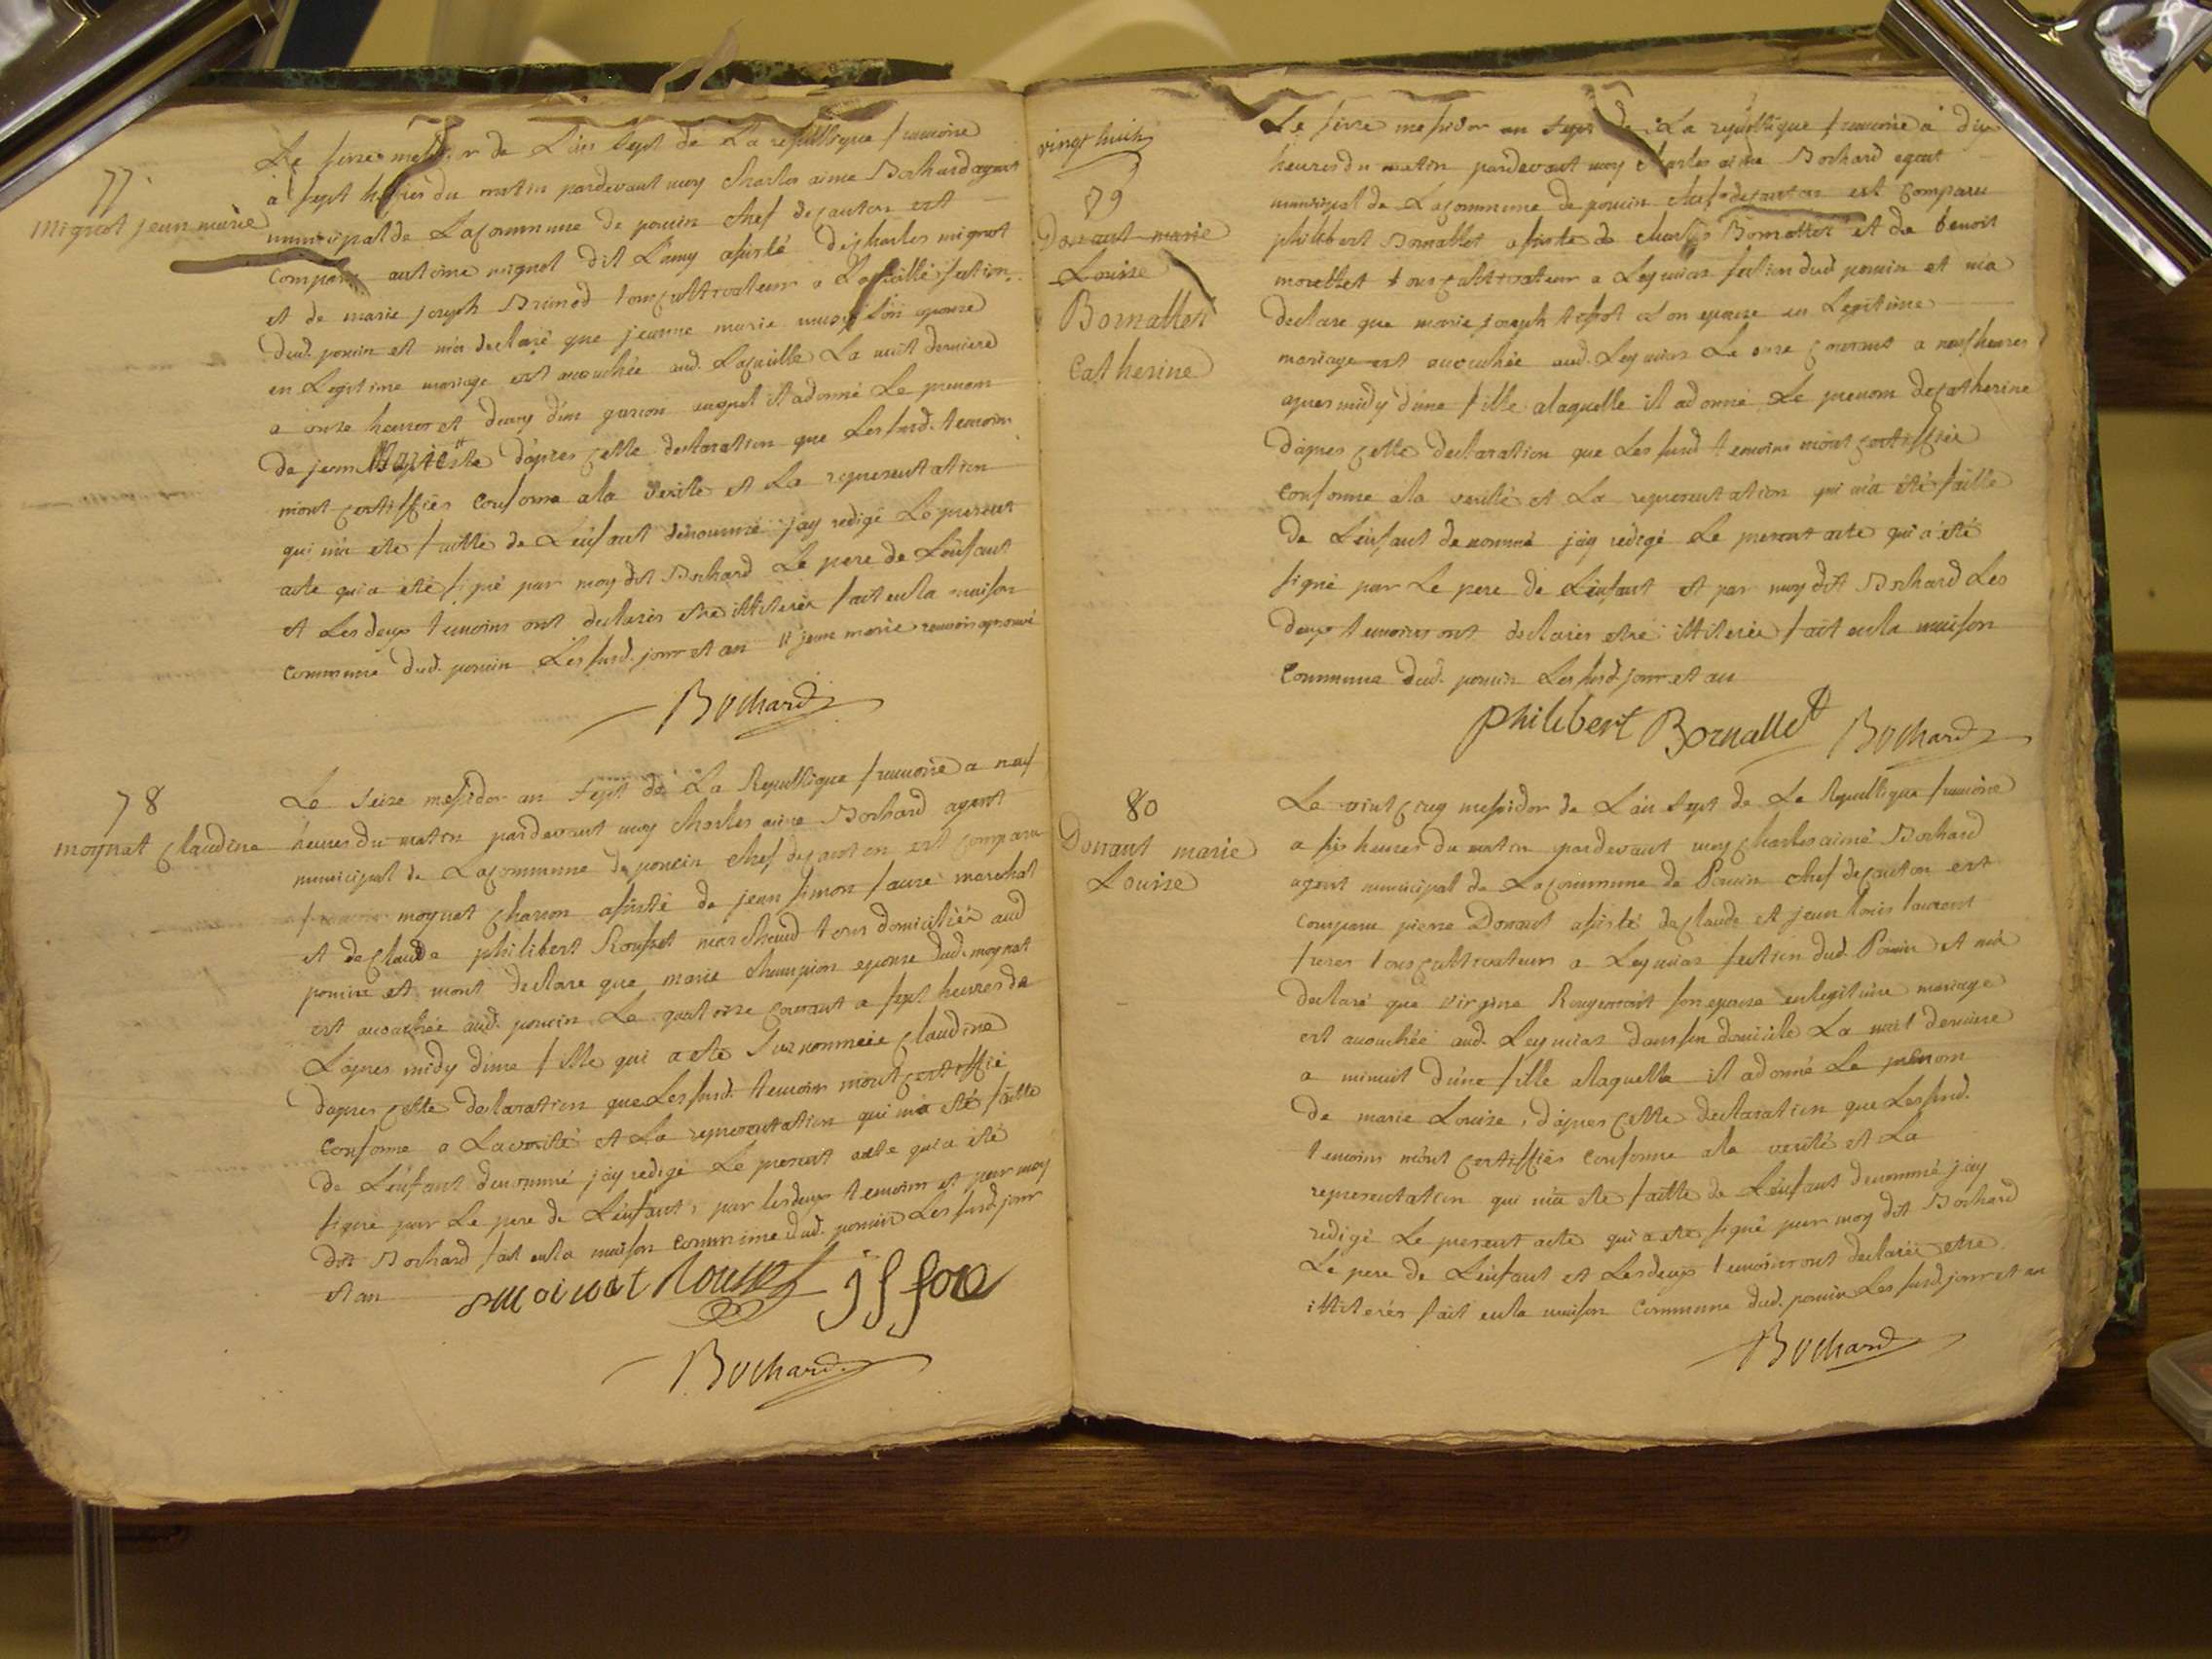 77.
Mignot jean marie
Le seize messidor de L'an sept de La republique francoise
a sept heures du matin pardevant moy charles aime Bochard agent
municipal de La commune de poncin chef de canton est
comparu antoine mignot dit L'amy assisté de charles mignot
et de marie joseph Brunod tous cultivateurs a section
dud. poncin et m'a declaré que jeanne marie son epouse
en Legitime mariage est accouchée aud. La nuit derniere
a onze heures et demy d'un garcon auquel il a donné Le prenom
de jean d'apres cette declaration que Les susd. temoins
mont certiffiés conforme a la verité et La representation
qui m'a été faitte de L'enfant dénommé j'ay redigé Le present
acte qui a été signé par moy dit Bochard Le pere de L'enfant
et Les deux temoins ont declarés etre illiterés fait en la maison
commune dud. poncin Les susd. jour et an # jean marie renvois aprouvé
Bochard
78
moynat Claudine
Le seize messidor an sept de La Republique francoise a neuf
heures du matin pardevant moy Charles aime Bochard agent
municipal de La commune de poncin chef de canton est comparu
moynat charon assisté de jean simon faure marechal
et de Claude philibert Rousset marchand tous domiciliés aud
poncin et mont declare que marie champion epouse dud. moynat
est accouchée aud. poncin Le quatorze courant a sept heures de
L'apres midy d'une fille qui a été surnommée Claudine
d'apres cette declaration que Les susd. temoins mont certiffié
conforme a La verité et La representation qui m'a été faitte
de L'enfant denommé j'ay redigé Le present acte qui a été
signé par Le pere de L'enfant, par les deux temoins et par moy
dit Bochard fait en la maison commune dud. poncin Les susd. jour
et an
moinat Rousset j s fore
Bochard
vingt huit
79
Donant marie
Louise
Bornallet
Catherine
Le seize messidor an sept de La republique francoise a dix
heures du matin pardevant moy charles aime Bochard agent
municipal de La commune de poncin chef de canton est comparu
philibert Bornallet assisté de charles Bornallet et de benoit
morellet tous cultivateur a Leymiaz section dud poncin et m'a
declare que marie joseph son epouse en Legitime
mariage est accouchée aud. Leymiaz Le onze courant a neuf heures
apres midy d'une fille a laquelle il a donné Le prenom de catherine
d'apres cette declaration que Les susd temoins m'ont certiffiés
conforme a la verité et La representation qui m'a été faitte
de L'enfant denommé j'ay redigé Le present acte qui a été
signé par Le pere de L'enfant et par moy dit Bochard Les
deux temoins ont declarés etre illiterés fait en la maison
commune dud. poncin Les susd. jour et an
philibert Bornallet Bochard
80
Donant marie
Louise
Le vint cinq messidor de L'an sept de La Republique francoise
a six heures du matin pardevant moy charles aimé Bochard
agent municipal de La commune de Poncin chef de canton est
comparu pierre Donant assisté de Claude et jean louis laurent
freres tous cultivateurs a Leymiaz section dud. Poncin et m'a
declaré que virgine Rougemont son epouse en legitime mariage
est accouchée aud. Leymiaz dans son domicile La nuit derniere
a minuit d'une fille a laquelle il a donné Le prenom
de marie Louise, d'apres cette declaration que Les susd.
temoins m'ont certiffiés conforme a la verité et La
representation qui m'a été faitte de L'enfant denommé j'ay
redigé Le present acte qui a été signé par moy dit Bochard
Le pere de L'enfant et Les deux temoins ont declarés etre
illiterés fait en la maison commune dud. poncin Les susd. jour et an
Bochard